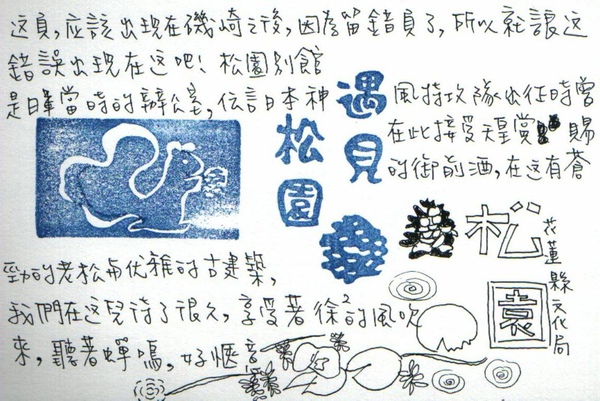 这頁,應該出現在磯崎之後,因為留錯頁了,所以就讓这
錯誤出現在这吧!松園別館
是日軍當時的辦公室,伝言日本神
風特攻隊出征時曾
在此接受天皇賞賜
的御前酒,在这有蒼
勁的老松与优雅的古建築,
我們在这兒待了很久,享受著徐²的風吹
來,聽著蟬鳴,好愜意
遇見
松園
松園
花蓮縣文化局